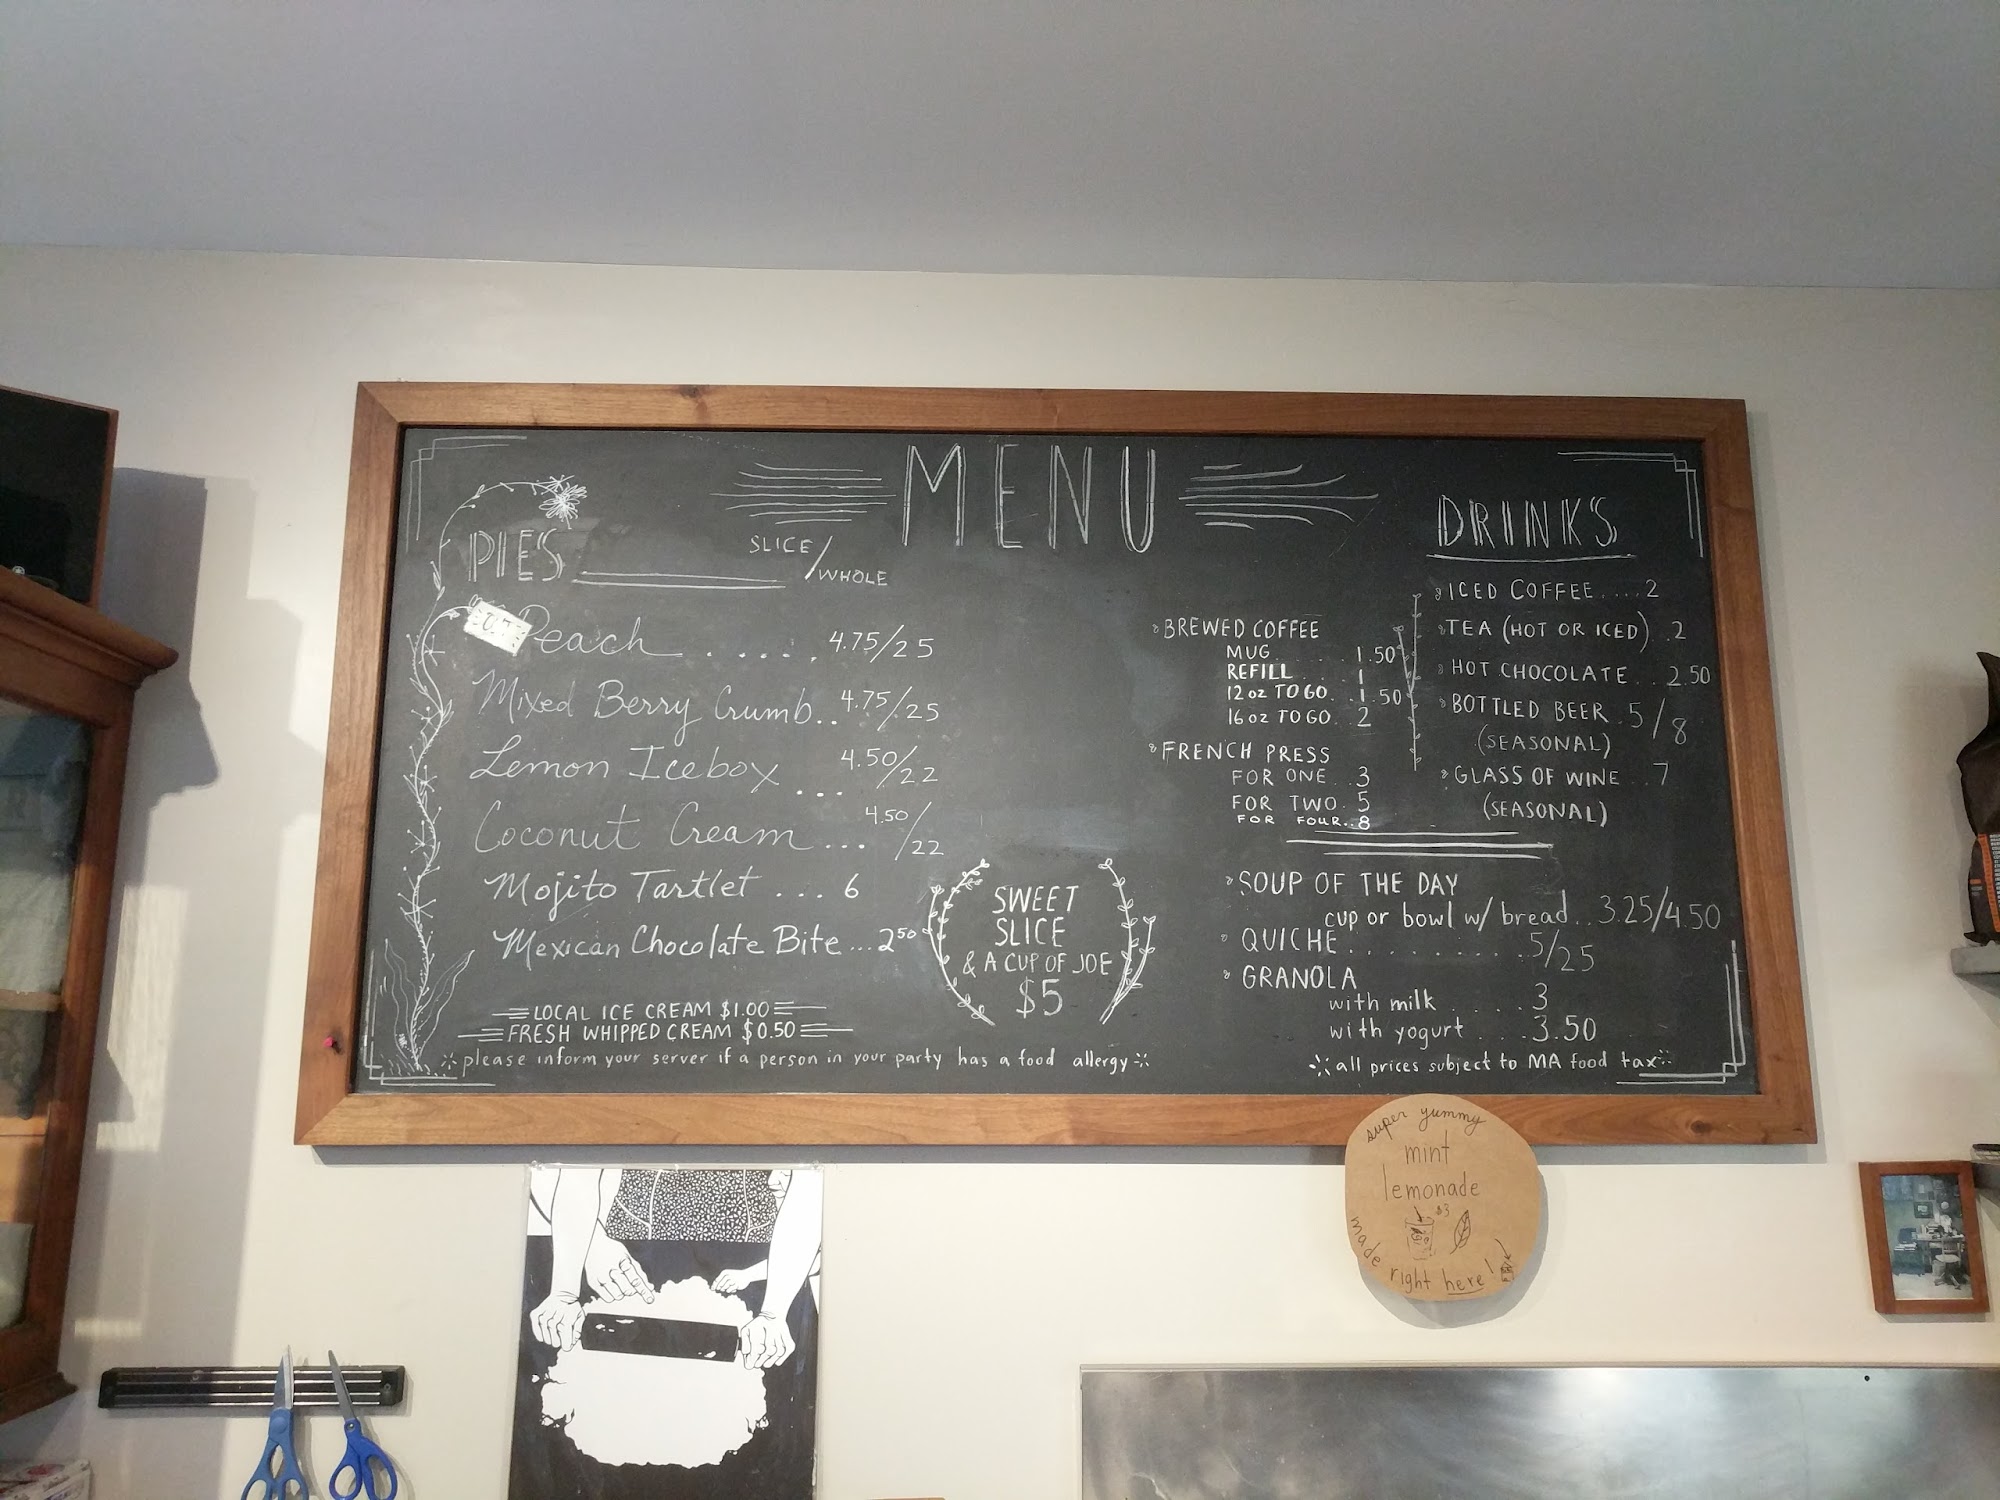 MENU
PIES
SLICE/WHOLE
OUT
Peach ..... 4.75/25
Mixed Berry Crumb.. 4.75/25
Lemon Icebox ... 4.50/22
Coconut Cream ... 4.50/22
Mojito Tartlet ... 6
Mexican Chocolate Bite ... 2.50
LOCAL ICE CREAM $1.00
FRESH WHIPPED CREAM $0.50
please inform your server if a person in your party has a food allergy
SWEET
SLICE
& A CUP OF JOE
$5
BREWED COFFEE
MUG...... 1.50
REFILL..... 1
12 oz TO GO.. 1.50
16 oz TO GO.. 2
FRENCH PRESS
FOR ONE.. 3
FOR TWO. 5
FOR FOUR.. 8
DRINK'S
ICED COFFEE....2
TEA (HOT OR ICED).2
HOT CHOCOLATE..2.50
BOTTLED BEER.5/8
(SEASONAL)
GLASS OF WINE..7
(SEASONAL)
SOUP OF THE DAY
cup or bowl w/ bread..3.25/4.50
QUICHE.........5/25
GRANOLA
with milk.....3
with yogurt...3.50
all prices subject to MA food tax
super yummy
mint
lemonade
$3
made right here!